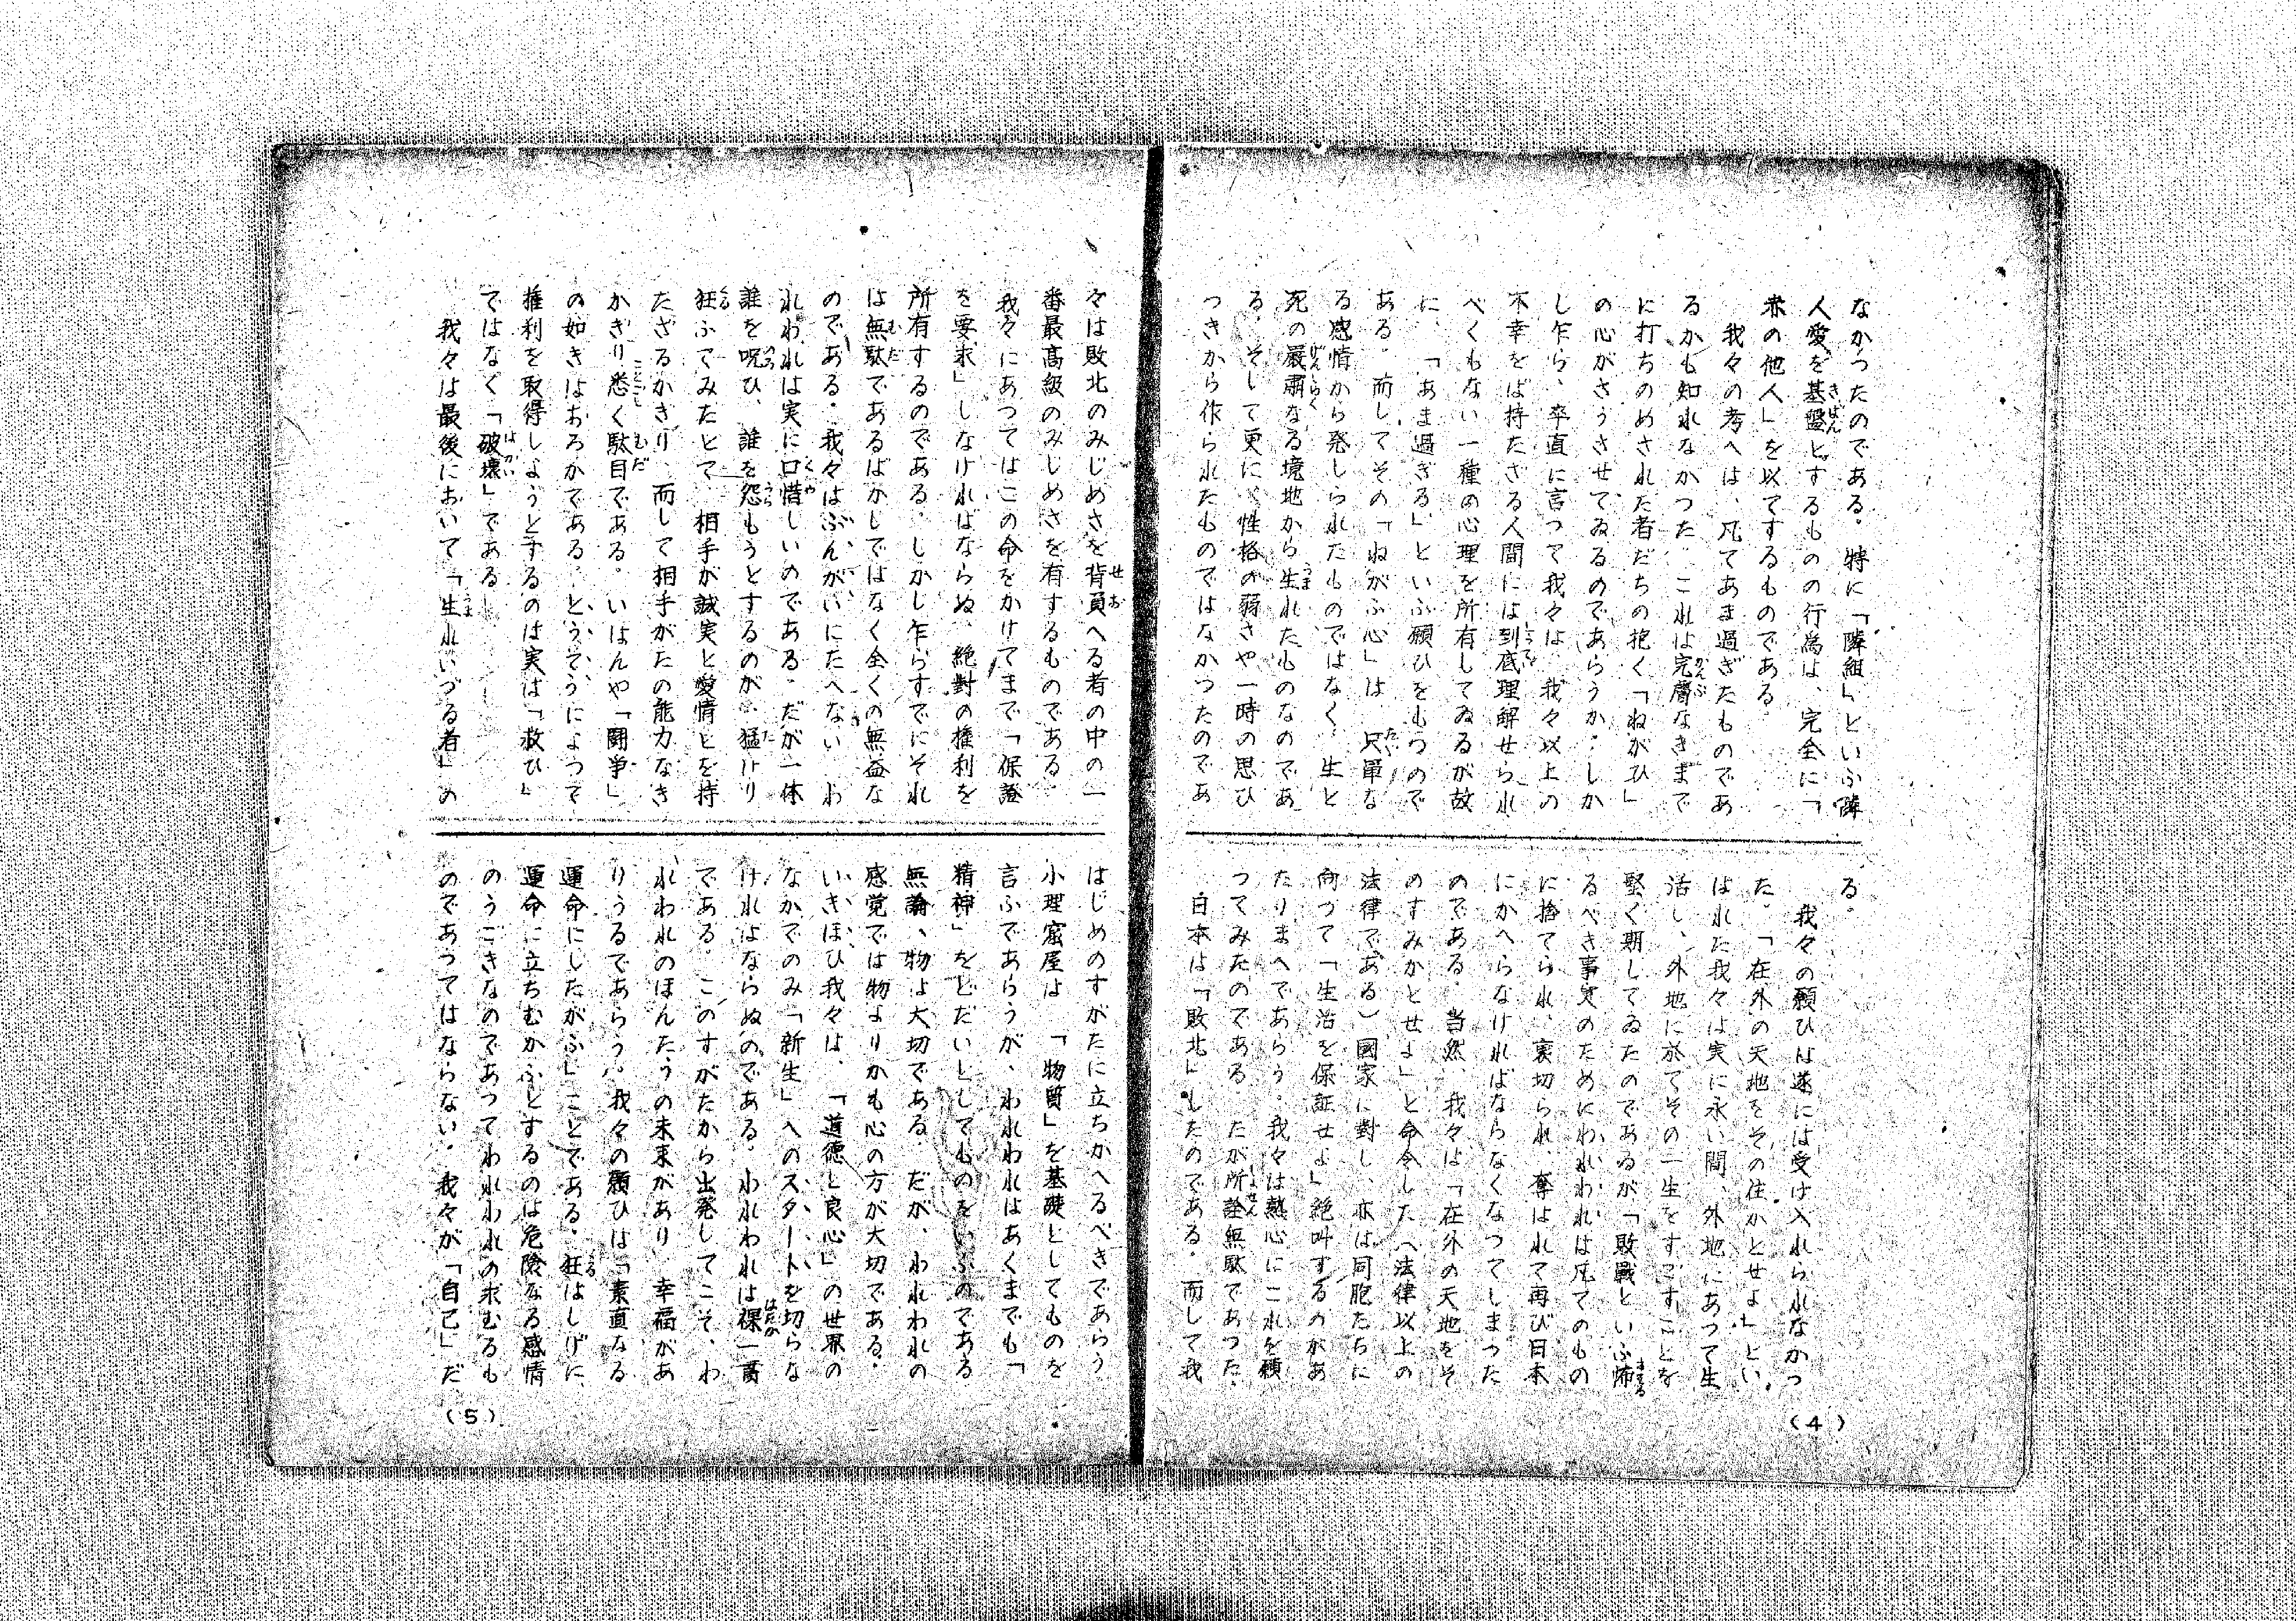 なかったのである。特に「隣組」といふ隣
人愛を基盤とするものの行為は、完全に「
赤の他人」を以てするものである。
我々の考へは、凡てあま過ぎたものであ
るかも知れなかつた。これは完膚なきまで
に打ちのめされた者だちの抱く「ねがひ」
の心がさうさせてゐるのであらうか。しか
し乍ら、卒直に言つて我々は、我々以上の
不幸をば持たざる人間には到底理解せられ
べくもない一種の心理を所有してゐるが故
に、「あま過ぎる」といふ願ひをもつので
ある。而してその「ねがふ心」は、只單な
る感情から発しられたものではなく、生と
死の嚴肅なる境地から生れたものなのであ
る。そして更に、性格の弱さや一時の思ひ
つきから作られたものではなかつたのであ
る。
我々の願ひは遂には受け入れられなかつ
た。「在外の天地をその住かとせよ」とい
はれた我々は実に永い間、外地にあつて生
活し、外地に於てその一生をすごすことを
堅く期してゐたのであるが「敗戰といふ怖
るべき事実のためにわれわれは凡てのもの
に捨てられ、裏切られ、奪はれて再び日本
にかへらなければならなくなつてしまつた
のである。当然、我々は「在外の天地をそ
のすみかとせよ」と命令した（法律以上の
法律である）國家に對し、亦は同胞たちに
向つて「生活を保証せよ」絶叫するのがあ
たりまへであらう。我々は熱心にこれを願
つてみたのである。だが所詮無駄であつた。
日本は「敗北」したのである。而して我
(4)
々は敗北のみじめさを背負へる者の中の一
番最高級のみじめさを有するものである。
我々にあつてはこの命をかけてまで「保證
を要求」しなければならぬ、絶對の権利を
所有するのである。しかし乍らすでにそれ
は無駄であるばかしではなく全くの無益な
のである。我々はぶんがいにたへない。わ
れわれは実に口惜しいのである。だが一体
誰を呪ひ、誰を怨もうとするのか、猛けり
狂ふてみたとて、相手が誠実と愛情とを持
たざるかぎり、而して相手がたの能力なき
かぎり悉く駄目である。いはんや「闘争」
の如きはおろかである。とうそうによつて
権利を取得しようとするのは実は「救ひ」
ではなく「破壊」である。
我々は最後において「生れいづる者」の
はじめのすがたに立ちかへるべきであらう
小理窟屋は「物質」を基礎としてものを
言ふであらうが、われわれはあくまでも「
精神」をどだいとしてものをいふのである
無論、物は大切である。だが、われわれの
感覚では物よりかも心の方が大切である。
いきほひ我々は、「道徳と良心」の世界の
なかでのみ「新生」へのスタートを切らな
ければならぬのである。われわれは裸一貫
である。このすがたから出発してこそ、わ
れわれのほんたうの未来があり、幸福があ
りうるであらう。我々の願ひは「素直なる
運命にしたがふ」ことである。狂はしげに
運命に立ちむかふとするのは危険なる感情
のうごきなのであつてわれわれの求むるも
のであつてはならない。我々が「自己」だ
(5)